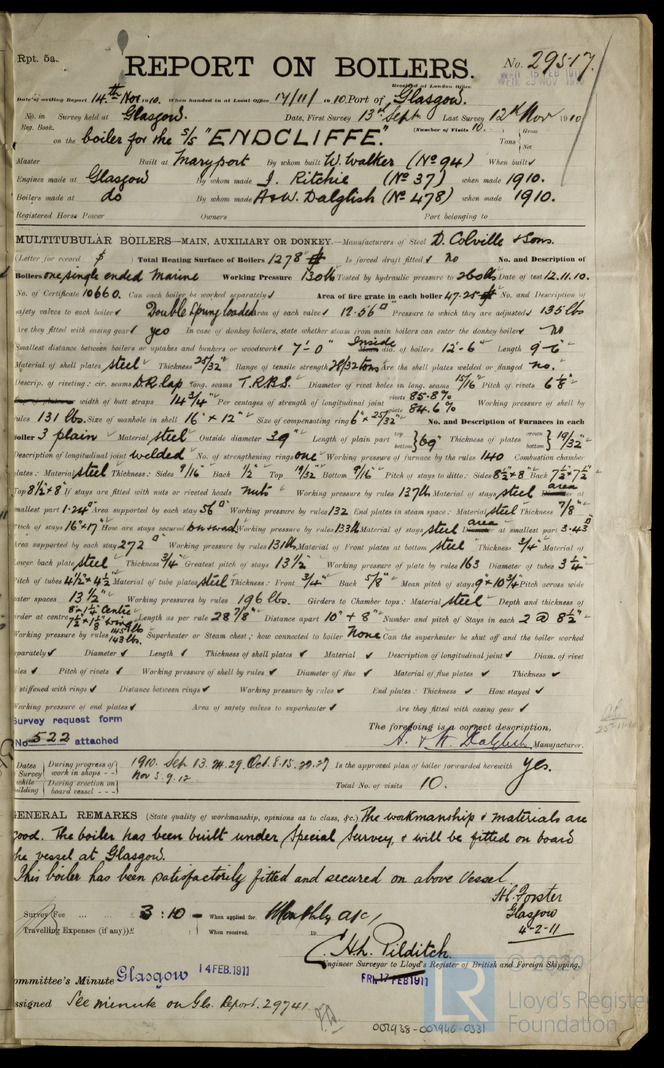 Rpt. 5a.
REPORT ON BOILERS.
No. 29517
Received at London Office
Date of writing Report 14th Nov 1910. When handed in at Local Office 17/11/ 1910. Port of Glasgow.
No. in Survey held at Glasgow. Date, First Survey 13th Sept Last Survey 12th Nov 1910
Reg. Book. (Number of Visits 10.
on the boiler for the S/S "ENDCLIFFE" Tons Gross Net
Master Built at Maryport By whom built W. Walker (No 94) When built
Engines made at Glasgow By whom made J. Ritchie (No 37) when made 1910.
Boilers made at do By whom made A & W. Dalglish (No 478) when made 1910.
Registered Horse Power Owners Port belonging to
MULTITUBULAR BOILERS—MAIN, AUXILIARY OR DONKEY.—Manufacturers of Steel D. Colville & Sons.
(Letter for record S) Total Heating Surface of Boilers 1278 Is forced draft fitted no No. and Description of
Boilers one single ended Marine Working Pressure 130 lbs Tested by hydraulic pressure to 260 lbs Date of test 12.11.10.
No. of Certificate 10660. Can each boiler be worked separately Area of fire grate in each boiler 47.25 No. and Description of
safety valves to each boiler Double Spring loaded Area of each valve 12.56 Pressure to which they are adjusted 135 lbs
Are they fitted with easing gear yes In case of donkey boilers, state whether steam from main boilers can enter the donkey boiler no
Smallest distance between boilers or uptakes and bunkers or woodwork 7'-0" Inside dia. of boilers 12'-6" Length 9'-6"
Material of shell plates steel Thickness 25/32" Range of tensile strength 28/32 tons Are the shell plates welded or flanged no.
Descrip. of riveting: cir. seams D.R. lap long. seams T.R.B.S. Diameter of rivet holes in long. seams 15/16" Pitch of rivets 6 1/8"
width of butt straps 14 3/4" Per centages of strength of longitudinal joint rivets 85.8% plate 84.6% Working pressure of shell by
rules 131 lbs. Size of manhole in shell 16" x 12" Size of compensating ring 6" x 25/32" No. and Description of Furnaces in each
boiler 3 plain Material steel Outside diameter 39" Length of plain part top bottom 69" Thickness of plates crown bottom 19/32"
Description of longitudinal joint welded No. of strengthening rings one Working pressure of furnace by the rules 140 Combustion chamber
plates: Material steel Thickness: Sides 9/16" Back 1/2" Top 19/32" Bottom 9/16" Pitch of stays to ditto: Sides 8 1/2" x 8" Back 7 1/2" x 7 1/2"
Top 8 1/2" x 8" If stays are fitted with nuts or riveted heads nuts Working pressure by rules 137 lb Material of stays steel area at
smallest part 1.24 Area supported by each stay 56 Working pressure by rules 132 End plates in steam space: Material steel Thickness 7/8"
Pitch of stays 16" x 17" How are stays secured Working pressure by rules 133 lb Material of stays steel area at smallest part 3.43
Area supported by each stay 272 Working pressure by rules 131 lb Material of Front plates at bottom steel Thickness 3/4" Material of
Lower back plate steel Thickness 3/4" Greatest pitch of stays 13 1/2" Working pressure of plate by rules 163 Diameter of tubes 3 1/4"
Pitch of tubes 4 1/2" x 4 1/2" Material of tube plates steel Thickness: Front 3/4" Back 5/8" Mean pitch of stays 9" x 10 3/4" Pitch across wide
water spaces 13 1/2" Working pressures by rules 196 lbs. Girders to Chamber tops: Material steel Depth and thickness of
girder at centre 8" x 1 1/4" Centre 7 1/2" x 1 1/8" wing Length as per rule 28 7/8" Distance apart 10" + 8" Number and pitch of Stays in each 2 @ 8 1/2"
Working pressure by rules 145 lbs 143 lbs. Superheater or Steam chest; how connected to boiler None Can the superheater be shut off and the boiler worked
separately Diameter Length Thickness of shell plates Material Description of longitudinal joint Diam. of rivet
holes Pitch of rivets Working pressure of shell by rules Diameter of flue Material of flue plates Thickness
If stiffened with rings Distance between rings Working pressure by rules End plates: Thickness How stayed
Working pressure of end plates Area of safety valves to superheater Are they fitted with easing gear
Survey request form
No. 522 attached
The foregoing is a correct description,
A. & W. Dalglish Manufacturer.
Dates of Survey while building During progress of work in shops - - 1910. Sep. 13. 24. 29. Oct. 8. 15. 22. 27 Is the approved plan of boiler forwarded herewith Yes.
During erection on board vessel - - - Nov 3. 9. 12. Total No. of visits 10.
GENERAL REMARKS (State quality of workmanship, opinions as to class, &c.) The workmanship & materials are
good. The boiler has been built under Special Survey, & will be fitted on board
the vessel at Glasgow.
This boiler has been satisfactorily fitted and secured on above Vessel
H. Forster
Glasgow
4-2-11
Survey Fee ... £ 3 : 10 - When applied for. Monthly a/c
Travelling Expenses (if any) £ When received.
C. H. L. Pilditch.
Engineer Surveyor to Lloyd's Register of British and Foreign Shipping.
Committee's Minute Glasgow 14 FEB. 1911 FRI. 17 FEB 1911
Assigned See minute on Gls. Report. 29741
© 2020
Lloyd's Register
Foundation
LR
001938-001946-0331